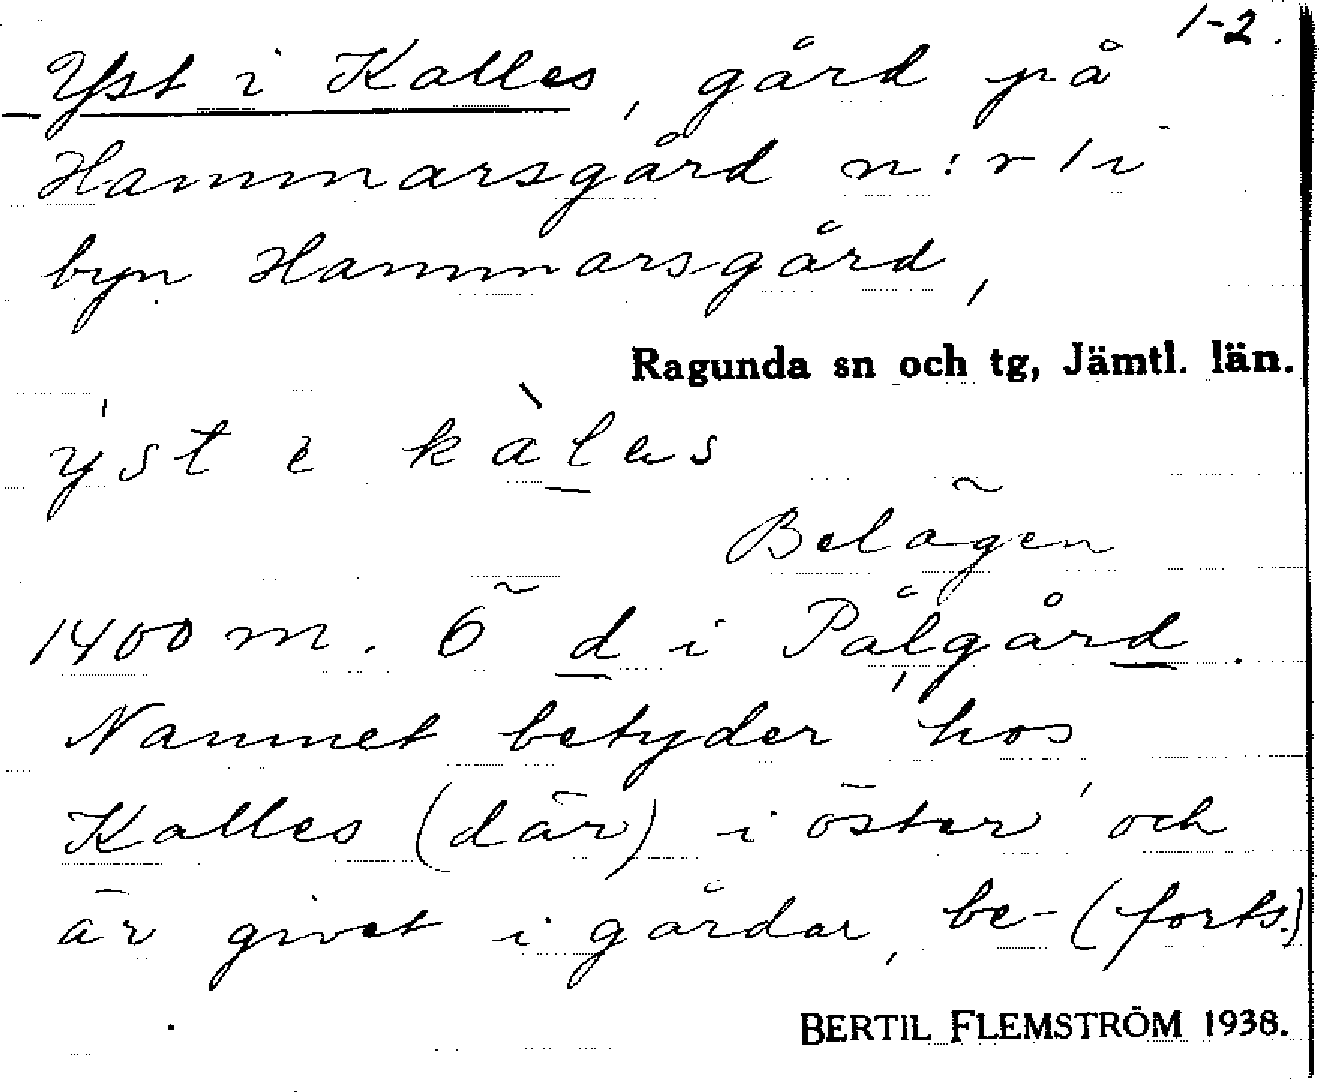 1-2.
Yst i Kalles, gård på
Hammarsgård n:r 1 i
byn Hammarsgård,
Ragunda sn och tg, Jämtl. län.
ýst i kàl̲es
Belägen
1400 m. Ö d̲ i Pålgård̲.
Namnet betyder 'hos
Kalles (där) i öster' och
är givet i gårdar, be- (forts.)
BERTIL FLEMSTRÖM 1938.